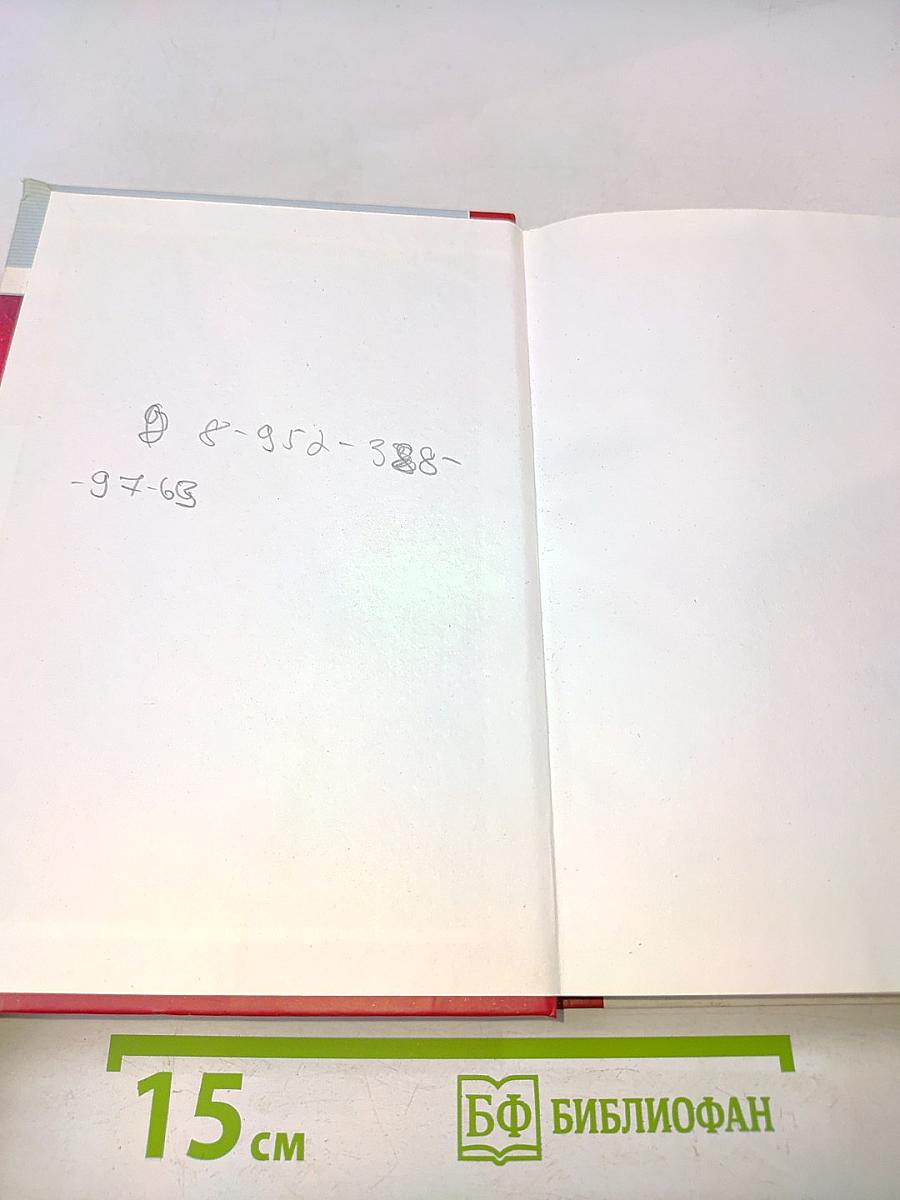 8-952-388-
-97-63
15 см
БФ БИБЛИОФАН